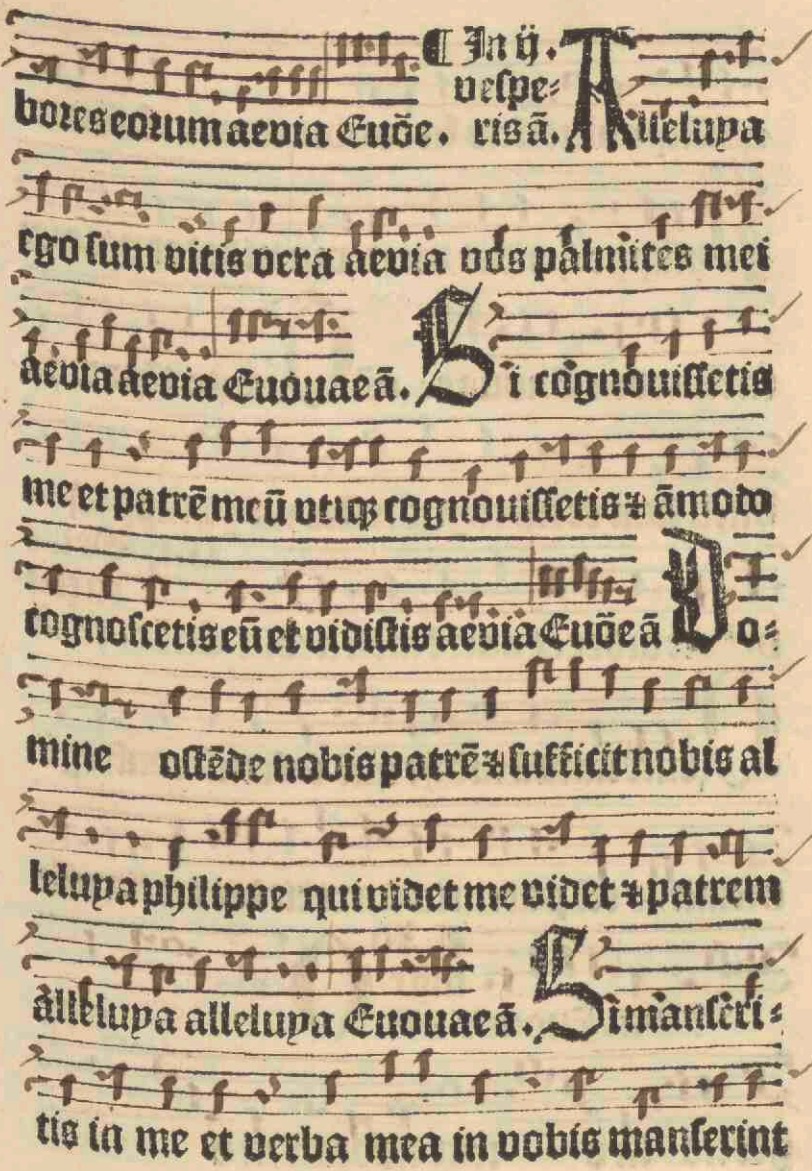 ¶ In ij.
vespe-
bores eorum aevia Euõe. ris ã. Alleluya
ego sum vitis vera aevia vos palmites mei
aevia aevia Euouae ã. Si cognouissetis
me et patrẽ meũ vtiqꝫ cognouissetis ⁊ ãmodo
cognoscetis eũ et vidistis aevia Euõe ã Do-
mine ostẽde nobis patrẽ ⁊ sufficit nobis al
leluya philippe qui videt me videt ⁊ patrem
alleluya alleluya Euouae ã. Si manseri-
tis in me et verba mea in vobis manserint